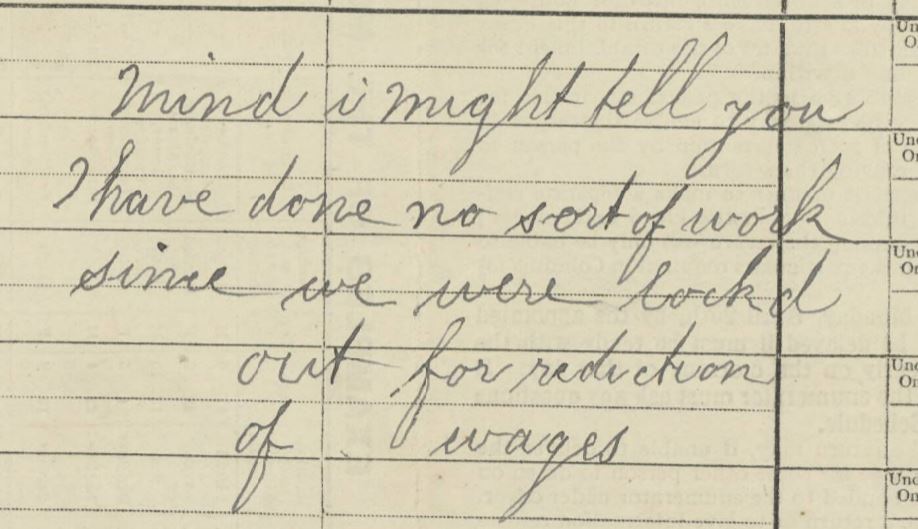 Mind i might tell you
I have done no sort of work
since we were lockd
out for reduction
of wages
Un
O
Und
On
Und
On
Und
On
Und
On